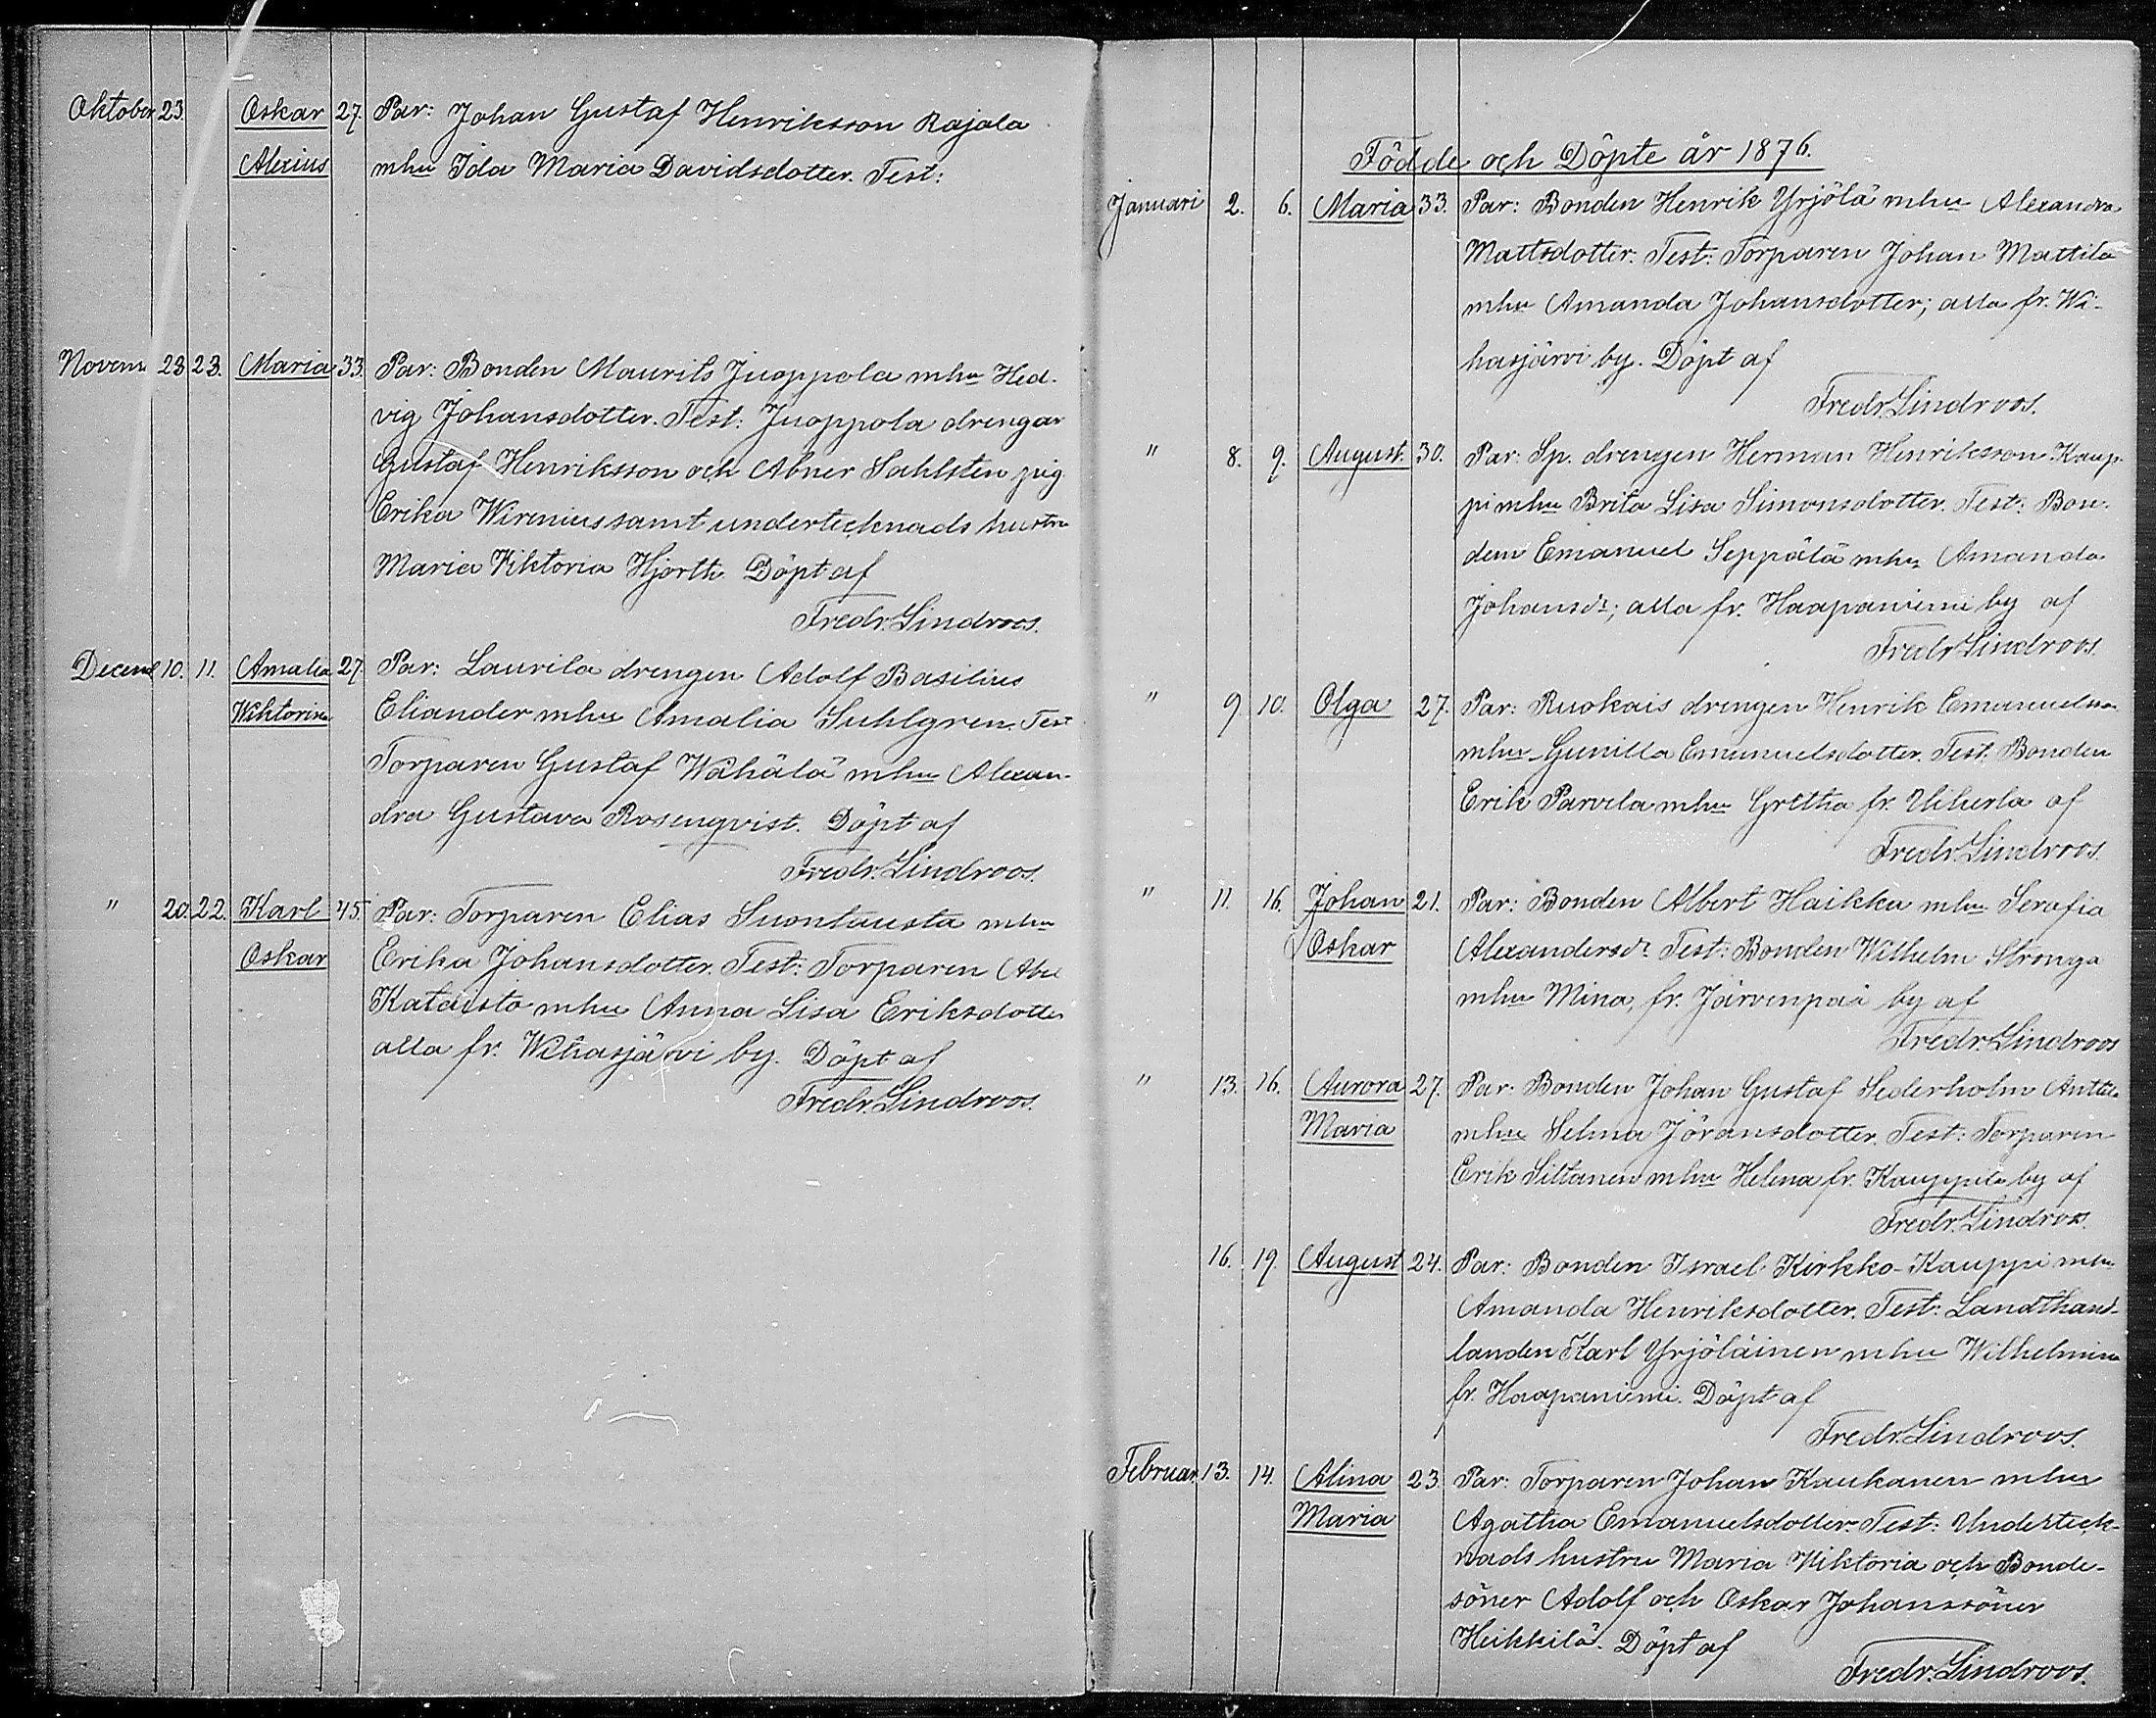 Oktober 23. Oskar 27. Par: Johan Gustaf Henriksson Rajala
Alexius mhu Ida Maria Davidsdotter. Test:
Novem 23 23. Maria 33. Par: Bonden Maurits Juoppola mhu Hed-
vig Johansdotter. Test: Juoppola drengar
Gustaf Henriksson och Abner Sahlsten pig.
Erika Wirenius samt undertecknads hustru
Maria Viktoria Hjorth. Döpt af
Fredr. Lindroos.
Decem 10. 11. Amalia 27. Par: Laurila drengen Adolf Basilius
Wiktorina Eliander mhu Amalia Suhlgren. Test
Torparen Gustaf Wähälä mhu Alexan-
dra Gustava Rosenqvist. Döpt af
Fredr. Lindroos.
" 20. 22. Karl 45. Par: Torparen Elias Suontausta mhu
Oskar Erika Johansdotter. Test: Torparen Abel
Kataisto mhu Anna Lisa Eriksdotter
alla fr. Wihasjärvi by. Döpt af
Fredr. Lindroos.
Födde och Döpte år 1876.
Januari 2. 6. Maria 33. Par: Bonden Henrik Yrjölä mhu Alexandra
Mattsdotter. Test: Torparen Johan Mattila
mhu Amanda Johansdotter; alla fr. Wi-
hasjärvi by. Döpt af
Fredr. Lindroos.
" 8. 9. August. 30. Par: Sp. drengen Herman Henriksson Kaup-
pi mhu Brita Lisa Simonsdotter. Test: Bon-
den Emanuel Seppälä mhu Amanda
Johansdr; alla fr. Haapaniemi by af
Fredr. Lindroos.
" 9. 10. Olga 27. Par: Ruokais drengen Henrik Emanuelsson
mhu Gunilla Emanuelsdotter. Test: Bonden
Erik Parvela mhu Gretha fr. Uiherla af
Fredr. Lindroos.
" 11. 16. Johan 21. Par: Bonden Albert Haikka mhu Serafia
Oskar Alexandersdr. Test: Bonden Wilhelm Stronga
mhu Mina, fr. Järvenpää by af
Fredr. Lindroos
" 13. 16. Aurora 27. Par: Bonden Johan Gustaf Sederholm Anttila
Maria mhu Selma Jöransdotter. Test: Torparen
Erik Siltanen mhu Helena fr. Kauppila by af
Fredr. Lindroos.
16. 19. August 24. Par: Bonden Israel Kirkko-Kauppi mhu
Amanda Henriksdotter. Test: Landthand-
landen Karl Yrjöläinen mhu Wilhelmina
fr. Haapaniemi. Döpt af
Fredr. Lindroos.
Februar. 13. 14. Alina 23. Par: Torparen Johan Kaukanen mhu
Maria Agatha Emanuelsdotter. Test: Underteck-
nads hustru Maria Viktoria och Bonde-
söner Adolf och Oskar Johanssöner
Heikkilä. Döpt af
Fredr. Lindroos.